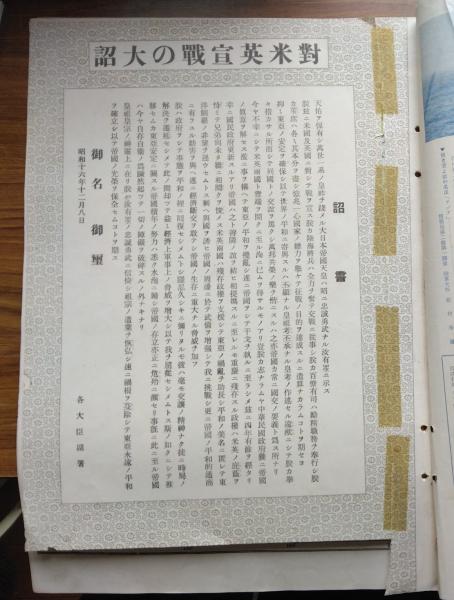 對米英宣戰の大詔
詔書
天佑ヲ保有シ萬世一系ノ皇祚ヲ踐メル大日本帝國天皇ハ昭ニ忠誠勇武ナル汝有衆ニ示ス
朕玆ニ米國及英國ニ對シテ戰ヲ宣ス朕カ陸海將兵ハ全力ヲ奮テ交戰ニ從事シ朕カ百僚有司ハ勵精職務ヲ奉行シ朕
カ衆庶ハ各々其ノ本分ヲ盡シ億兆一心國家ノ總力ヲ擧ケテ征戰ノ目的ヲ達成スルニ遺算ナカラムコトヲ期セヨ
抑々東亞ノ安定ヲ確保シ以テ世界ノ平和ニ寄與スルハ丕顯ナル皇祖考丕承ナル皇考ノ作述セル遠猷ニシテ朕カ拳
々措カサル所而シテ列國トノ交誼ヲ篤クシ萬邦共榮ノ樂ヲ偕ニスルハ之亦帝國カ常ニ國交ノ要義ト爲ス所ナリ
今ヤ不幸ニシテ米英兩國ト釁端ヲ開クニ至ル洵ニ已ムヲ得サルモノアリ豈朕カ志ナラムヤ中華民國政府曩ニ帝國
ノ眞意ヲ解セス濫ニ事ヲ構ヘテ東亞ノ平和ヲ攪亂シ遂ニ帝國ヲシテ干戈ヲ執ルニ至ラシメ玆ニ四年有餘ヲ經タリ
幸ニ國民政府更新スルアリ帝國ハ之ト善隣ノ誼ヲ結ヒ相提攜スルニ至レルモ重慶ニ殘存スル政權ハ米英ノ庇蔭ヲ
恃ミテ兄弟尚未タ牆ニ相鬩クヲ悛メス米英兩國ハ殘存政權ヲ支援シテ東亞ノ禍亂ヲ助長シ平和ノ美名ニ匿レテ東
洋制覇ノ非望ヲ逞ウセムトス剩ヘ與國ヲ誘ヒ帝國ノ周邊ニ於テ武備ヲ增強シテ我ニ挑戰シ更ニ帝國ノ平和的通商
ニ有ラユル妨害ヲ與ヘ遂ニ經濟斷交ヲ敢テシ帝國ノ生存ニ重大ナル脅威ヲ加フ
朕ハ政府ヲシテ事態ヲ平和ノ裡ニ囘復セシメムトシ隱忍久シキニ彌リタルモ彼ハ毫モ交讓ノ精神ナク徒ニ時局ノ
解決ヲ遷延セシメテ此ノ間却ツテ益々經濟上軍事上ノ脅威ヲ增大シ以テ我ヲ屈從セシメムトス斯ノ如クニシテ推
移セムカ東亞安定ニ關スル帝國積年ノ努力ハ悉ク水泡ニ歸シ帝國ノ存立亦正ニ危殆ニ瀕セリ事既ニ此ニ至ル帝國
ハ今ヤ自存自衞ノ爲蹶然起ツテ一切ノ障礙ヲ破碎スルノ外ナキナリ
皇祖皇宗ノ神靈上ニ在リ朕ハ汝有衆ノ忠誠勇武ニ信倚シ祖宗ノ遺業ヲ恢弘シ速ニ禍根ヲ芟除シテ東亞永遠ノ平和
ヲ確立シ以テ帝國ノ光榮ヲ保全セムコトヲ期ス
御名御璽
昭和十六年十二月八日
各大臣副署